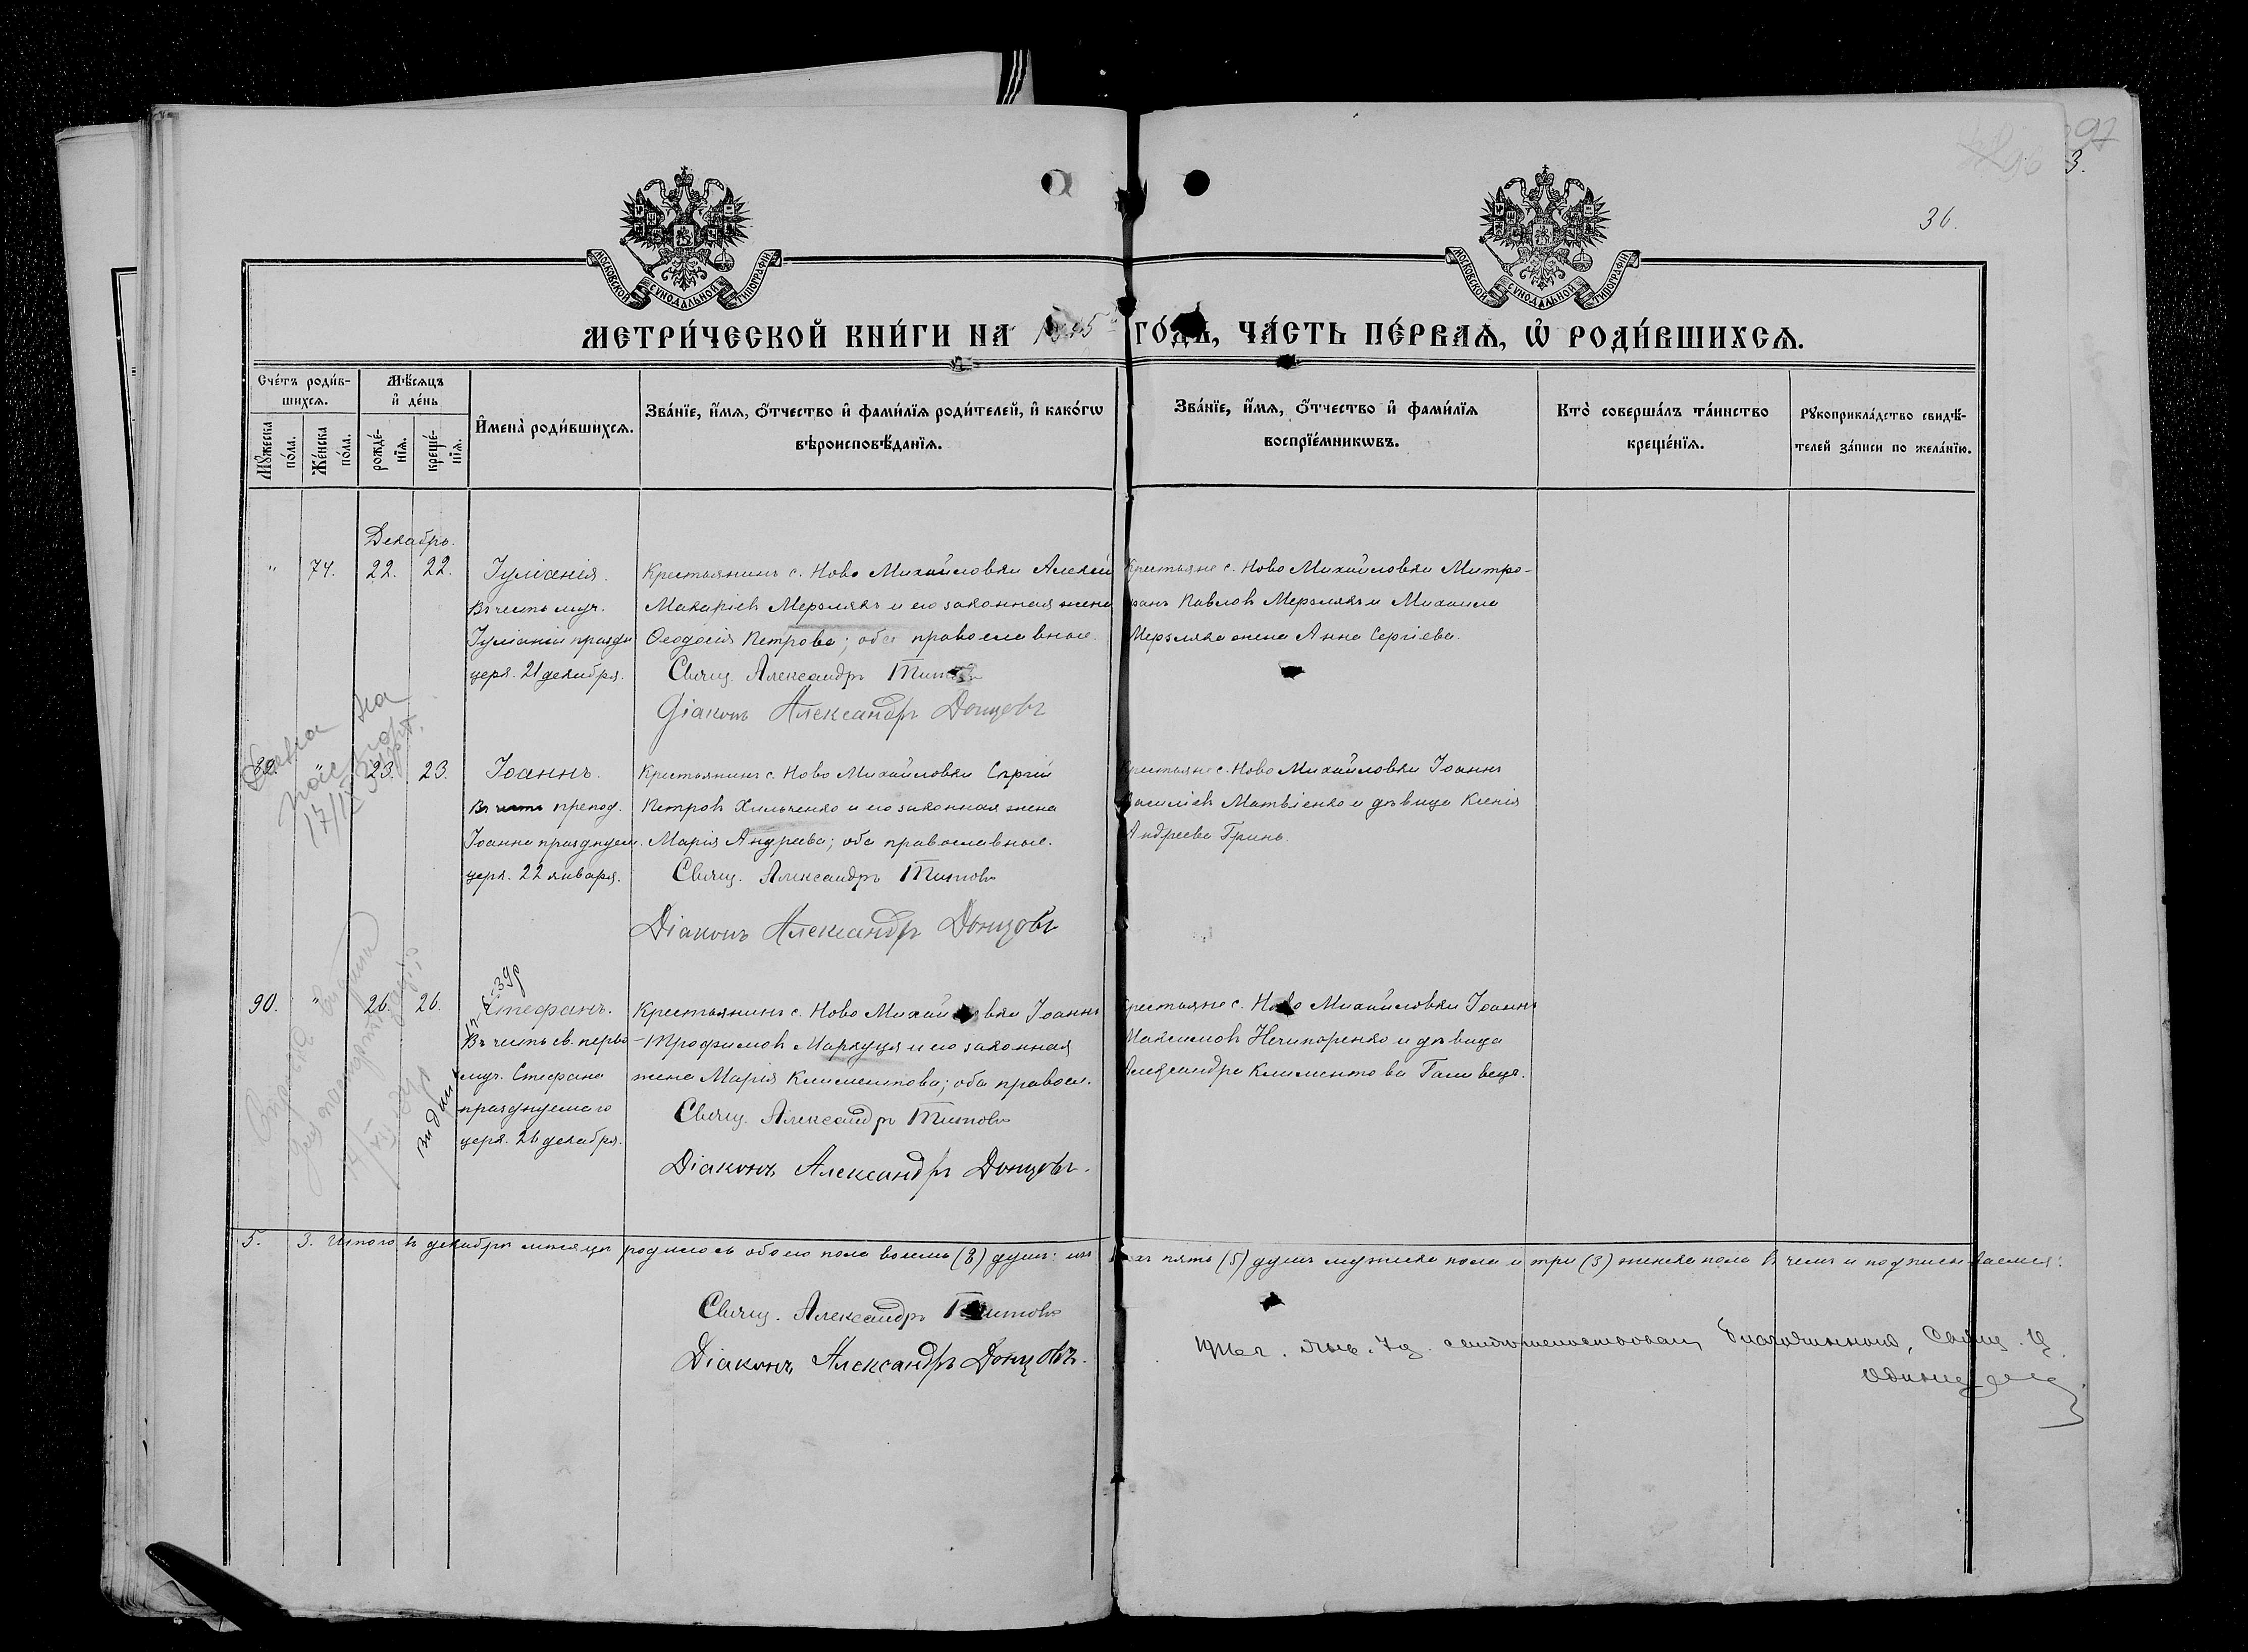 97
3.
36.
МОСКОВСКОЙ СѴНОДАЛЬНОЙ ТИПОГРАФІИ
МОСКОВСКОЙ СѴНОДАЛЬНОЙ ТИПОГРАФІИ
МЕТРИ́ЧЕСКОЙ КНИ́ГИ НА ГО́ДЪ, ЧА́СТЬ ПЕ́РВАѦ, Ѡ҆ РОДИ́ВШИХСѦ.
Сче́тъ роди́в-
шихсѧ.
Мꙋ́жеска по́ла.
Же́нска по́ла.
Мѣ́сѧцъ
и҆ де́нь
рожде́-
нїѧ.
креще́-
нїѧ.
И҆мена̀ роди́вшихсѧ.
Зва́нїе, и҆́мѧ, ѻ҆́тчество и҆ фами́лїѧ роди́телей, и҆ како́гѡ
вѣроисповѣ́данїѧ.
Зва́нїе, и҆́мѧ, ѻ҆́тчество и҆ фами́лїѧ
воспрїе́мникѡвъ.
Кто̀ соверша́лъ та́инство
креще́нїѧ.
Рꙋкоприкла́дство свидѣ́-
телей за́писи по жела́нїю.
Декабрь.
" 74. 22. 22.
Іуліанія.
Въ честь муч.
Іуліаніи праздн.
церк. 21 декабря.
Крестьянинъ с. Ново Михайловки Алексій
Макаріевъ Мерзлякъ и его законная жена
Ѳеодосія Петрова; оба православные.
Свящ. Александръ Титовъ
Діаконъ Александръ Донцовъ
Крестьяне с. Ново Михайловки Митро-
фанъ Павловъ Мерзлякъ и Михаила
Мерзляка жена Анна Сергіева.
Дана на
паспорт.
89. " 23. 23.
Іоаннъ.
Въ честь препод.
Іоанна празднуем.
церк. 22 января.
Крестьянинъ с. Ново Михайловки Сергій
Петровъ Хильченко и его законная жена
Марія Андреева; оба православные.
Свящ. Александръ Титовъ
Діаконъ Александръ Донцовъ
Крестьяне с. Ново Михайловки Іоаннъ
Василіевъ Матвіенко и дѣвица Ксенія
Андреева Гринь.
90. " 26. 26.
Стефанъ.
Въ честь св. перво
муч. Стефана
празднуемаго
церк. 26 декабря.
Крестьянинъ с. Ново Михайловки Іоаннъ
Трофимовъ Маркуця и его законная
жена Марія Климентова; оба правосл.
Свящ. Александръ Титовъ
Діаконъ Александръ Донцовъ.
Крестьяне с. Ново Михайловки Іоаннъ
Максимовъ Нечипоренко и дѣвица
Александра Климентова
5. 3. Итого въ декабрѣ мѣсяцѣ родилось обоего пола восемь (8) душъ: изъ нихъ пять (5) душъ мужеска пола и три (3) женска пола въ чемъ и подписываемся:
Свящ. Александръ Титовъ
Діаконъ Александръ Донцовъ.
свидѣтельствовалъ Благочинный, Свящ.